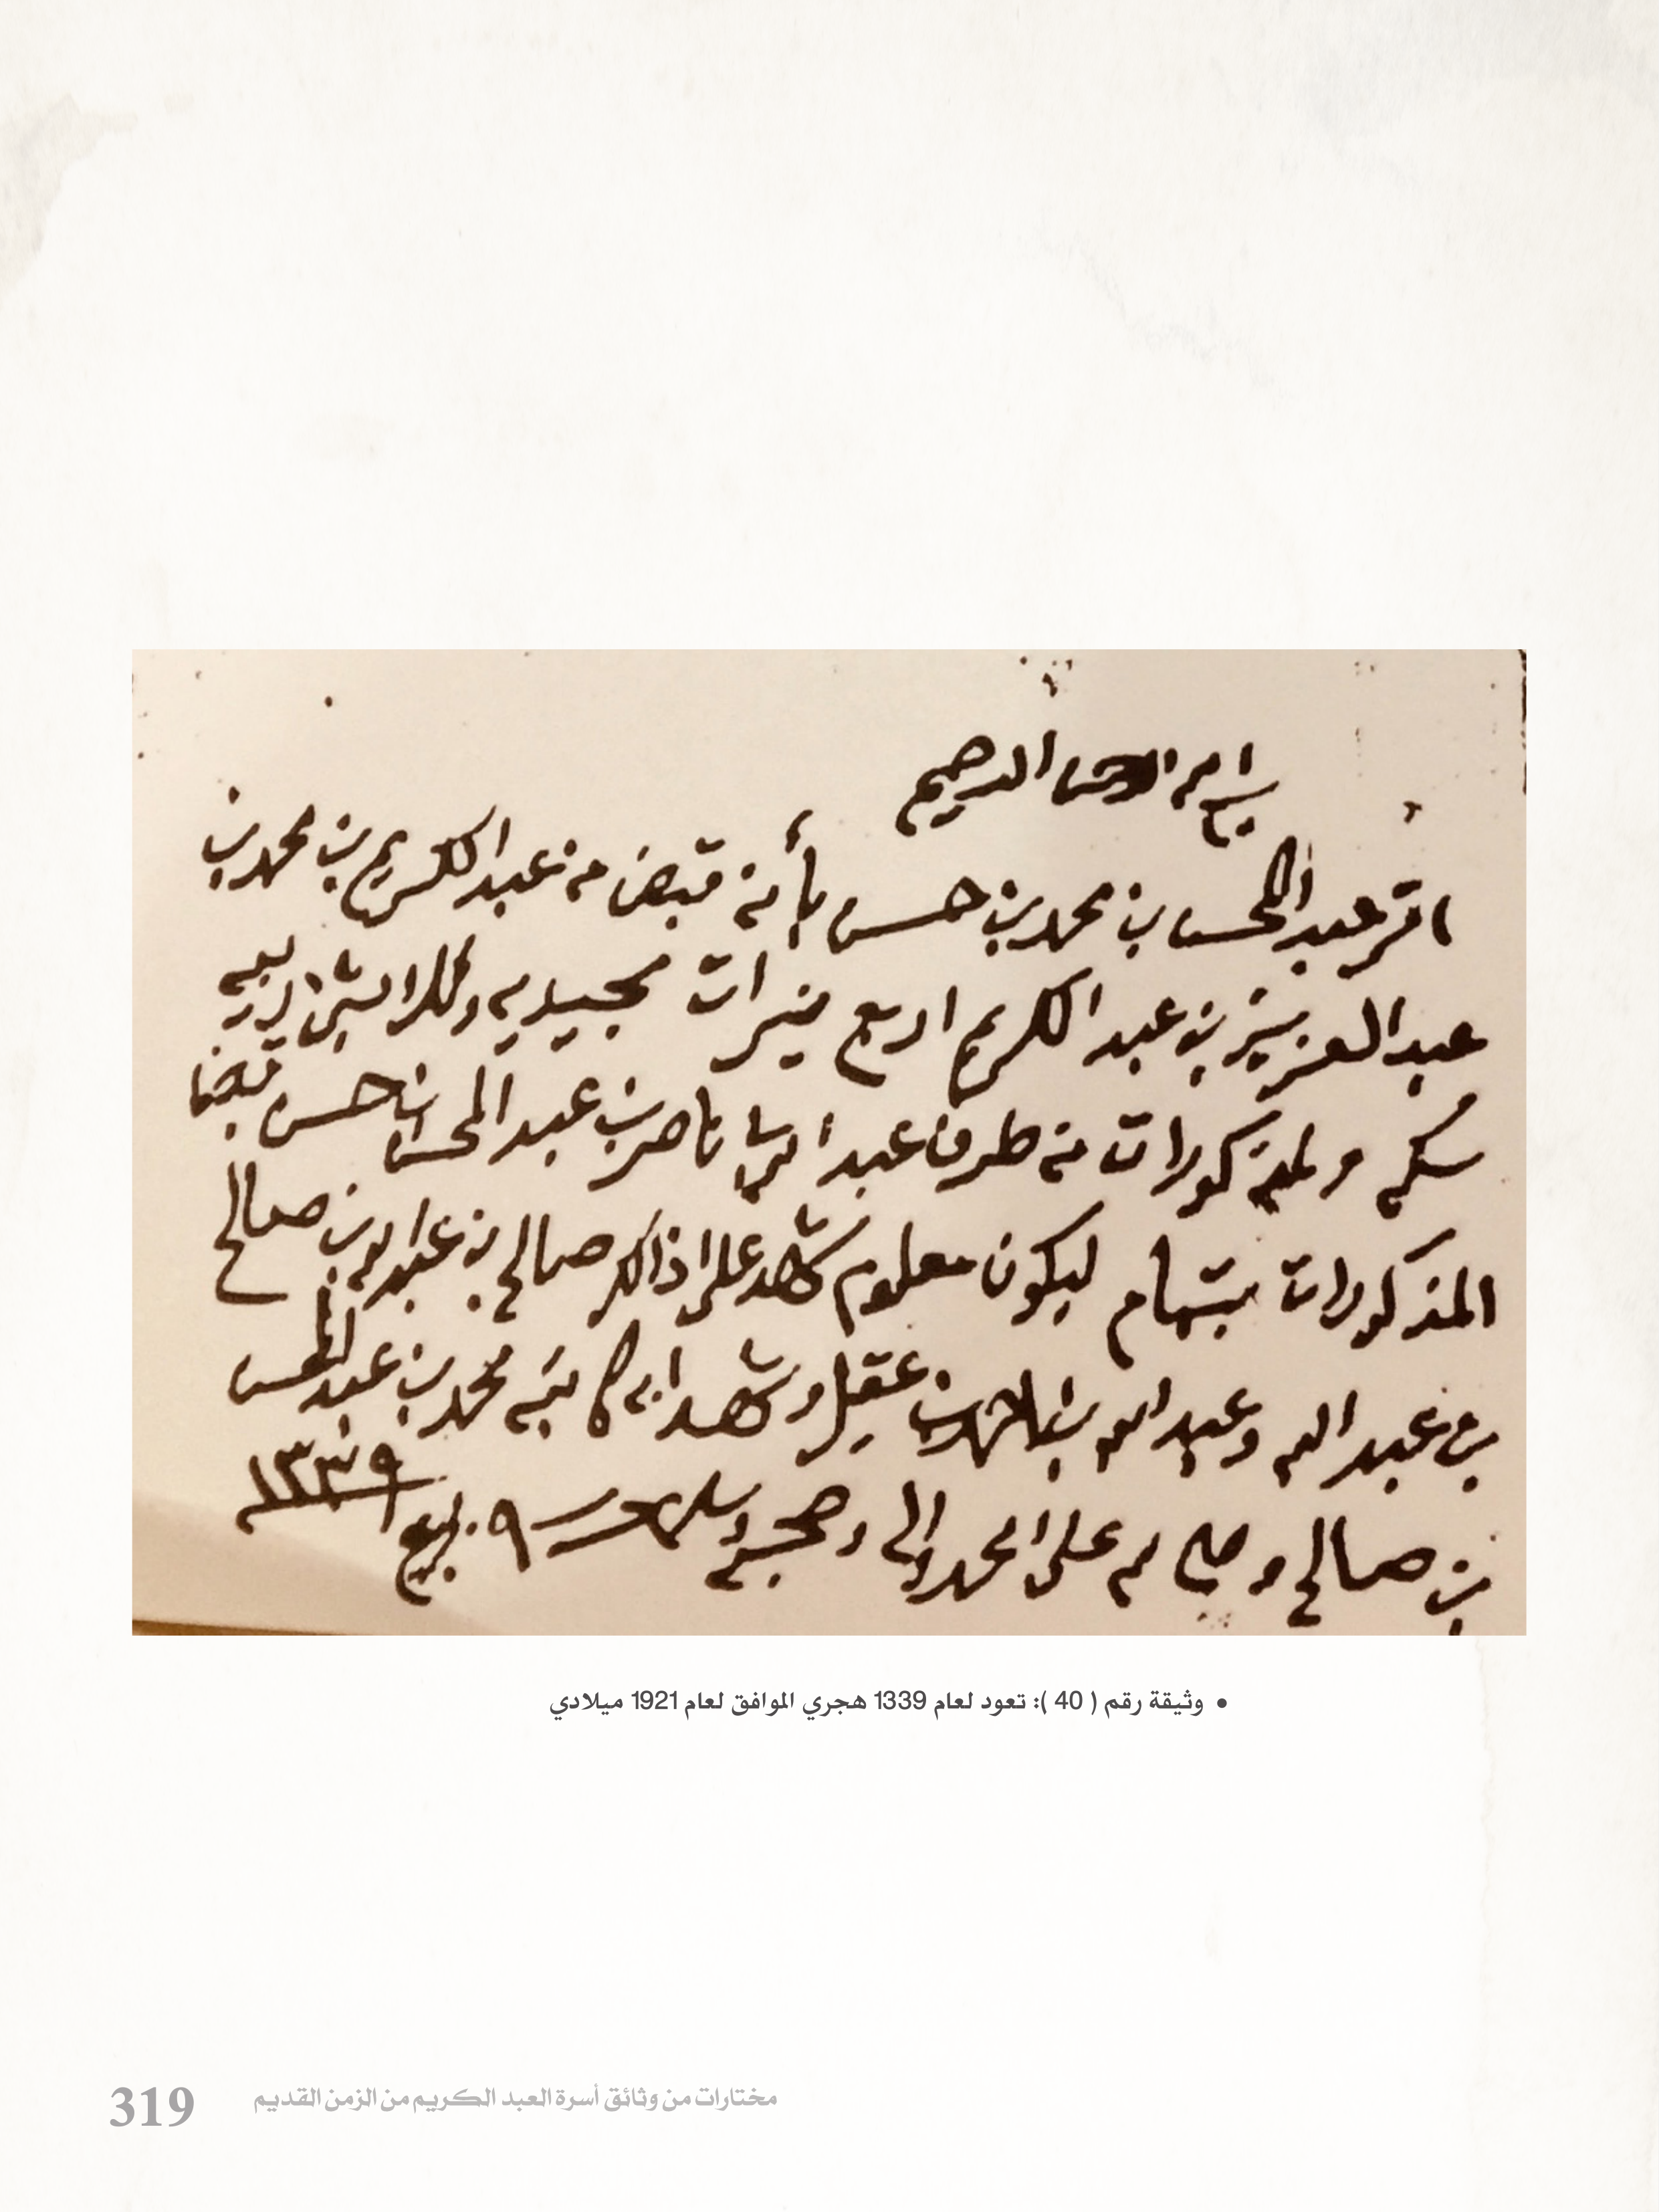 بسم الله الرحمن الرحيم
اقر عبد المحسن بن محمد بن حسن بأنه قبض من عبد الكريم بن محمد بن
عبد العزيز بن عبد الكريم اربع نيرات مجيديه وثلاثين ربيه
سكه ولمذكورات من طرف عبد الله ناصر بن عبد المحسن بن حسن قبضنا
المذكورات بتمام ليكون معلوم شهد على اذالك صالح بن عبد الله بن صالح
بن عبد الله وعبد الله بن احمد بن عقيل وشهد به كاتبه محمد بن عبد المحسن
بن صالح وصلى الله على محمد واله وصحبه وسلم حرر ٩ ربيع ١٣٣٩
• وثيقة رقم ( 40 ): تعود لعام 1339 هجري الموافق لعام 1921 ميلادي
مختارات من وثائق أسرة العبد الكريم من الزمن القديم 319